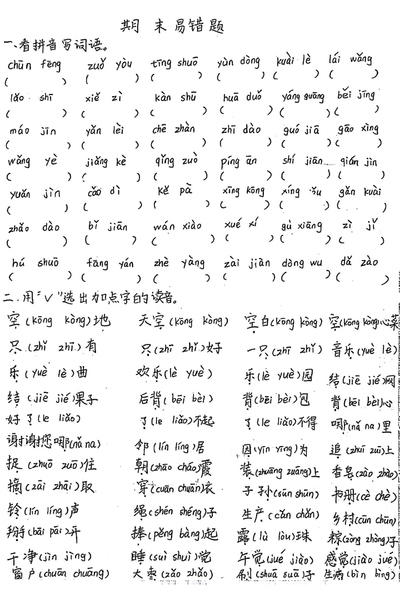 期末易错题
一、看拼音写词语。
chūn fēng zuǒ yòu tīng shuō yùn dòng kuài lè lái wǎng
( ) ( ) ( ) ( ) ( ) ( )
lǎo shī xiě zì kàn shū huā duǒ yáng guāng běi jīng
( ) ( ) ( ) ( ) ( ) ( )
máo jīn yǎn lèi chē zhàn zhī dào guó jiā gāo xìng
( ) ( ) ( ) ( ) ( ) ( )
wǎng yè jiǎng kè qǐng zuò píng ān shí jiān qián jìn
( ) ( ) ( ) ( ) ( ) ( )
yuǎn jìn cǎo dì kě pà xīng kōng xíng gǎn kuài
( ) ( ) ( ) ( ) ( ) ( )
zhǎo dào bǐ jiān wán xiào xué xí gù xiāng zì jǐ
( ) ( ) ( ) ( ) ( ) ( )
hú shuō fāng yán zhè yàng zài jiàn dòng wu dǎ zào
( ) ( ) ( ) ( ) ( ) ( )
二、用"√"选出加点字的读音。
空(kōng kòng)地 天空(kōng kòng) 空白(kōng kòng) 空(kōng kòng)心菜
只(zhǐ zhī)有 只(zhǐ zhī)好 一只(zhǐ zhī) 音乐(yuè lè)
乐(yuè lè)曲 欢乐(lè yuè) 乐(lè yuè)园 结(jiē jié)网
结(jiē jié)果子 后背(bēi bèi) 背(bēi bèi)包 背(bēi bèi)心
好了(le liǎo) 了(le liǎo)不起 了(le liǎo)不得 哪(nǎ na)里
谢谢您哪(nǎ na) 邻(lín líng)居 因(yīn yīng)为 追(zhuī zuī)上
捉(zhuō zuō)住 朝(zhāo cháo)霞 装(zhuāng zuāng)上 香皂(zào zhào)
摘(zāi zhāi)取 穿(cuān chuān)衣 子孙(sūn shūn) 书册(cè chè)
铃(lín líng)声 绳(shén shéng)子 生产(cǎn chǎn) 乡村(cūn chūn)
拍手(bāi pāi)开 捧(pěng bàng)起 露(lù lòu)珠 粽(zòng zhòng)子
干净(jìn jìng) 睡(suì shuì)觉 午觉(jué jiào) 感觉(jiào jué)
窗户(chuān chuāng) 大枣(zǎo zhǎo) 刷(shuā suā)子 生病(bìn bìng)